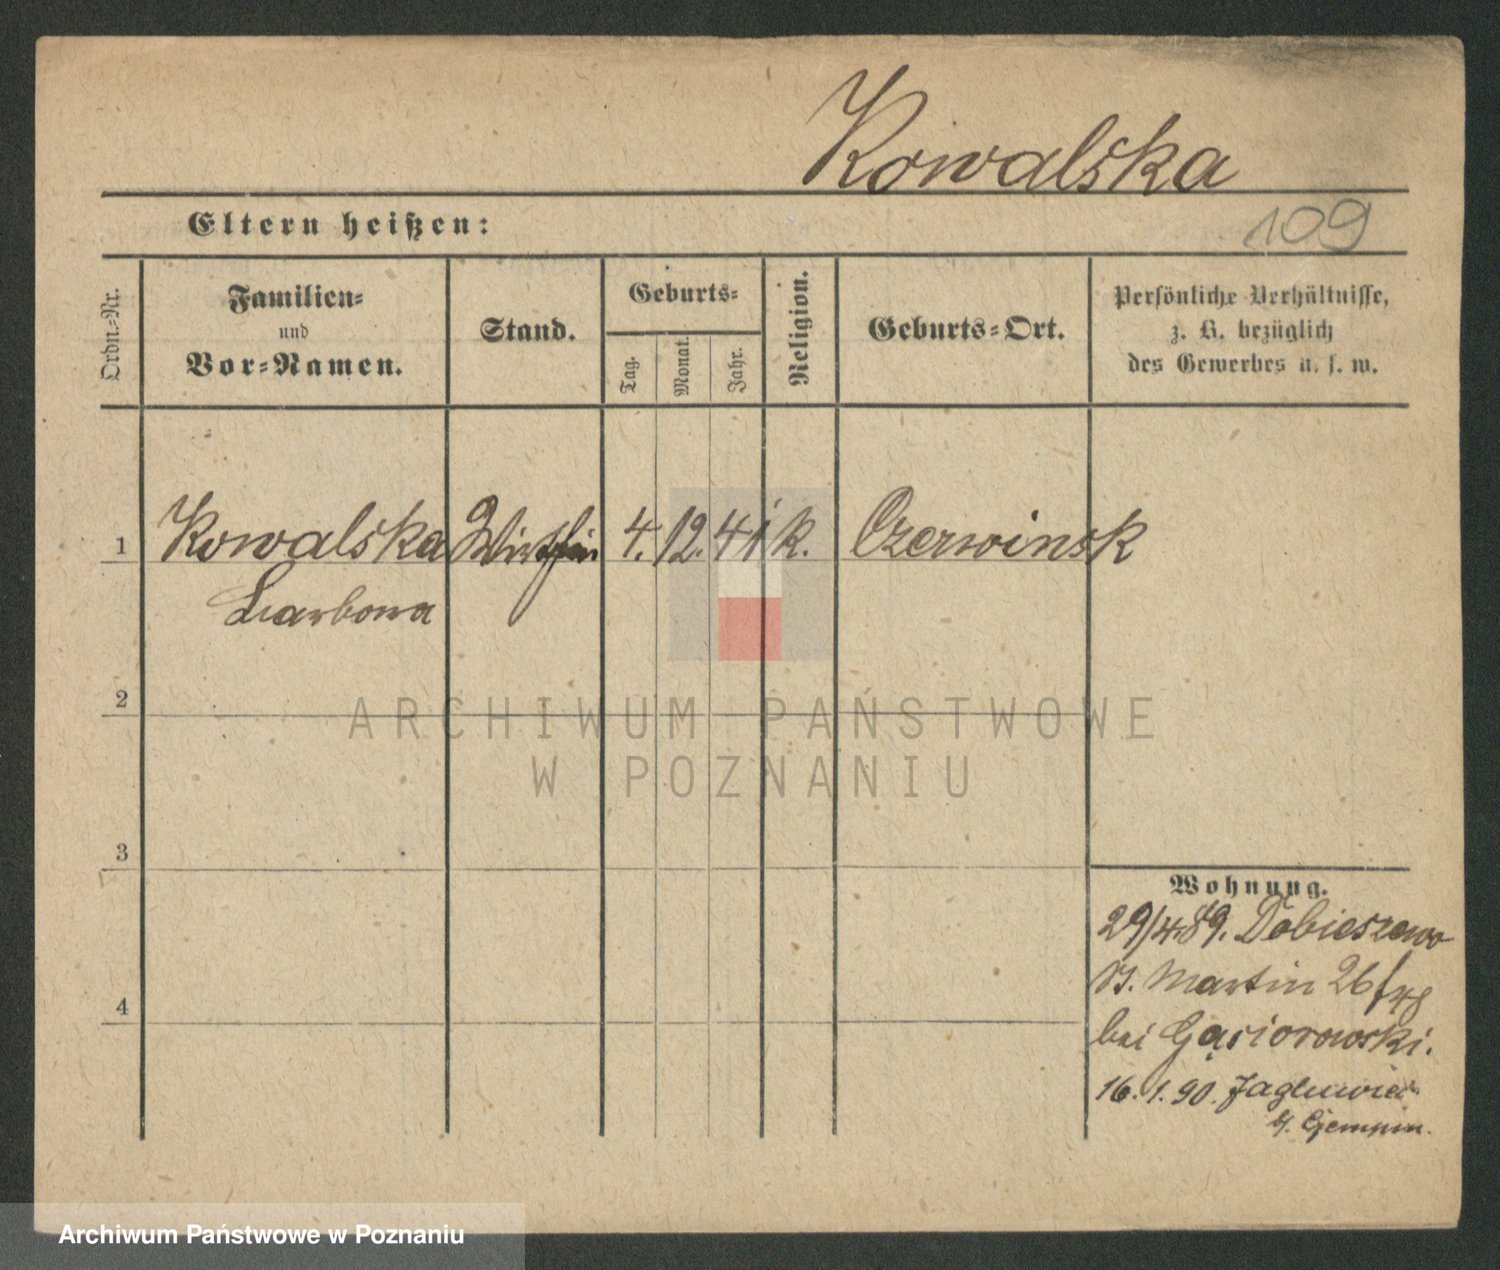 Kowalska
Eltern heißen:
109
Ordn.-Nr.
Familien-
und
Vor-Namen.
Stand.
Geburts-
Tag.
Monat.
Jahr.
Religion.
Geburts-Ort.
Persönliche Verhältnisse,
z. B. bezüglich
des Gewerbes u. s. w.
1 Kowalska 4. 12. 41 k. Czerwinsk
2
ARCHIWUM PAŃSTWOWE
W POZNANIU
3
Wohnung.
29/4 89. Dobieszewo
St. Martin 26
4
bei Gąsiorowski.
16. 1. 90.
Archiwum Państwowe w Poznaniu